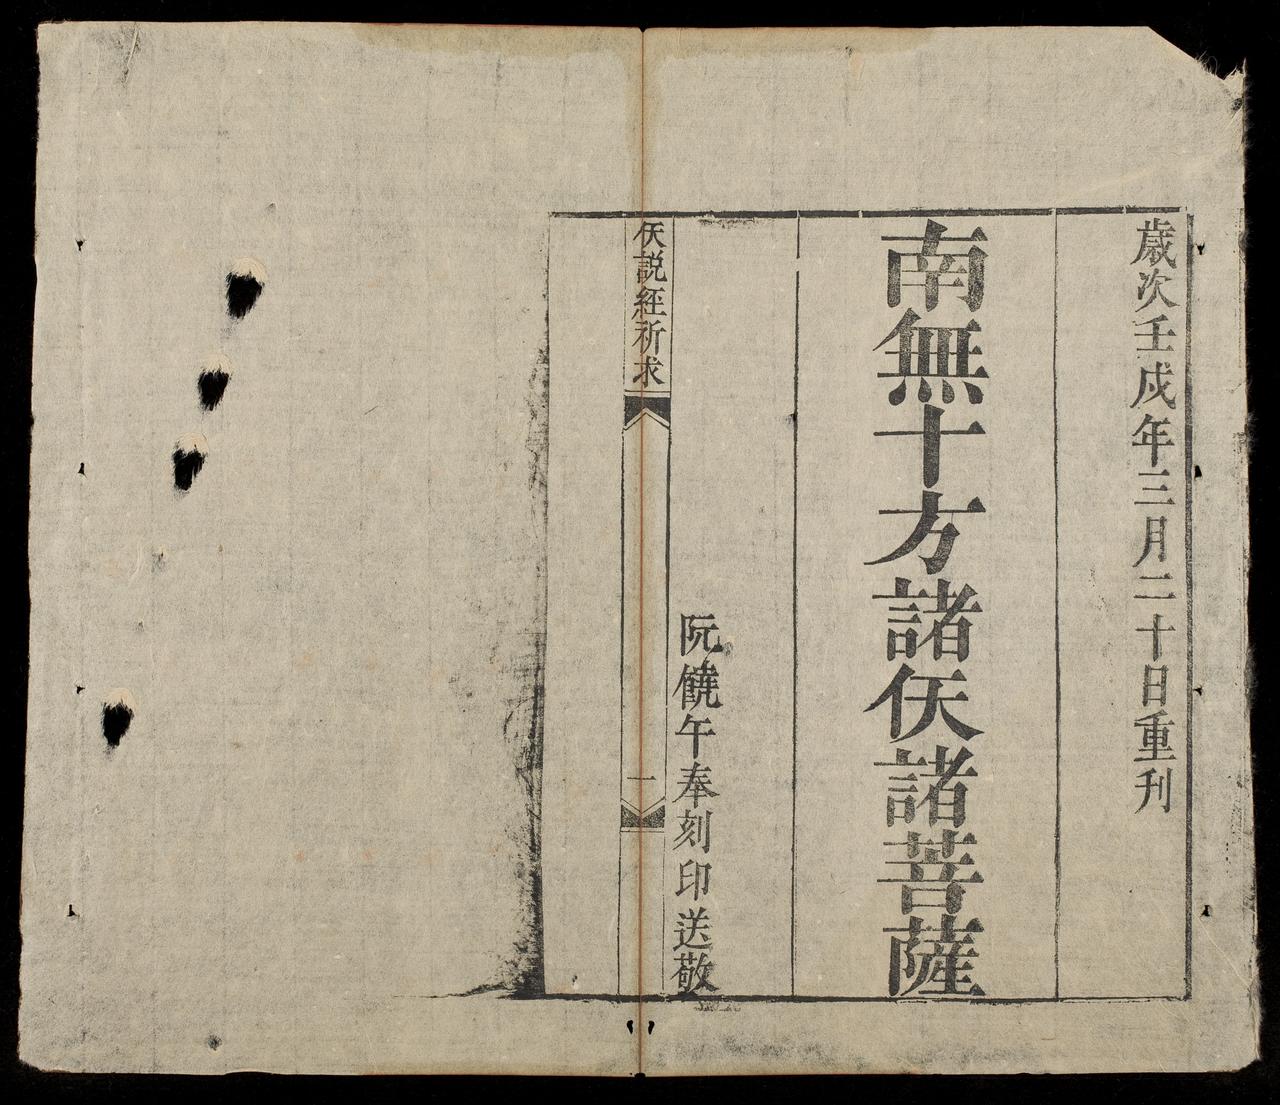 歲次壬戌年三月二十日重刊
南無十方諸仸諸菩薩
阮饒午奉刻印送敬
仸説経祈求
一